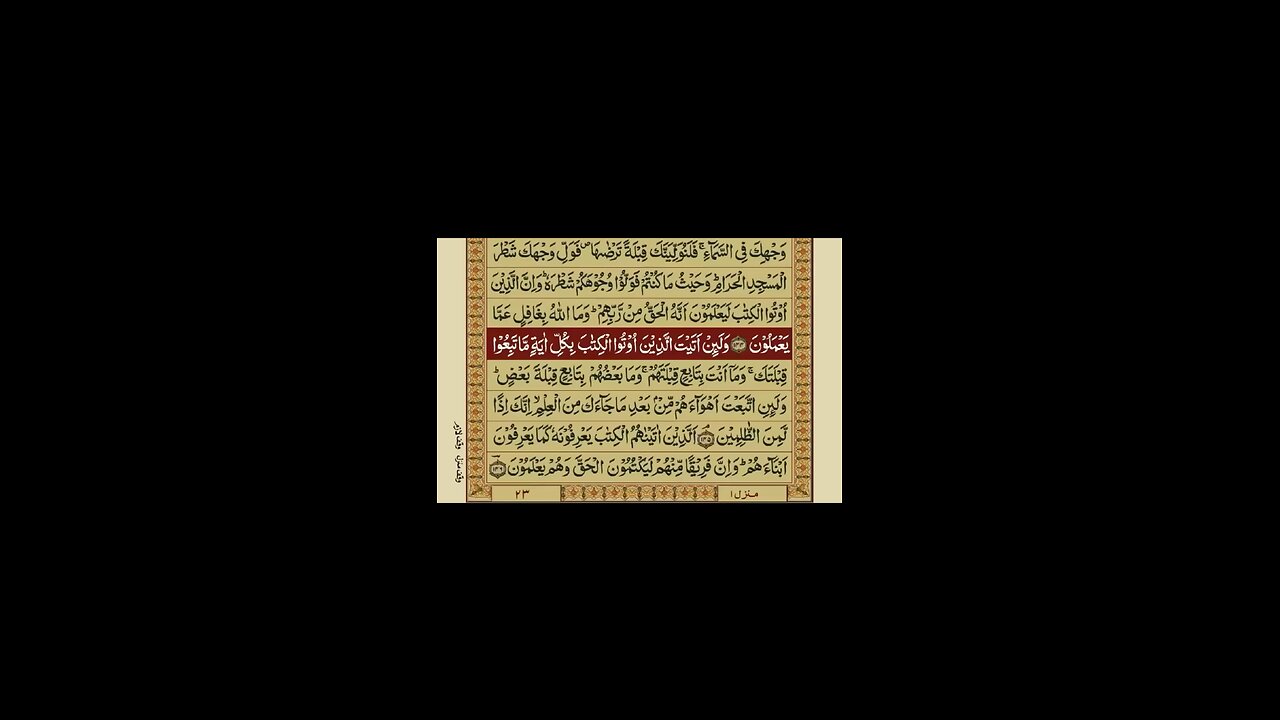 وَجْهِكَ فِی السَّمَآءِ ۚ فَلَنُوَلِّیَنَّكَ قِبْلَةً تَرْضٰىهَا ۪ فَوَلِّ وَجْهَكَ شَطْرَ
الْمَسْجِدِ الْحَرَامِ ؕ وَحَیْثُ مَا كُنْتُمْ فَوَلُّوْا وُجُوْهَكُمْ شَطْرَهٗ ؕ وَاِنَّ الَّذِیْنَ
اُوْتُوا الْكِتٰبَ لَیَعْلَمُوْنَ اَنَّهُ الْحَقُّ مِنْ رَّبِّهِمْ ؕ وَمَا اللّٰهُ بِغَافِلٍ عَمَّا
یَعْمَلُوْنَ ﴿۱۴۴﴾ وَلَىِٕنْ اَتَیْتَ الَّذِیْنَ اُوْتُوا الْكِتٰبَ بِكُلِّ اٰیَةٍ مَّا تَبِعُوْا
قِبْلَتَكَ ۚ وَمَاۤ اَنْتَ بِتَابِعٍ قِبْلَتَهُمْ ۚ وَمَا بَعْضُهُمْ بِتَابِعٍ قِبْلَةَ بَعْضٍ ؕ
وَلَىِٕنِ اتَّبَعْتَ اَهْوَآءَهُمْ مِّنْۢ بَعْدِ مَا جَآءَكَ مِنَ الْعِلْمِ ۙ اِنَّكَ اِذًا
لَّمِنَ الظّٰلِمِیْنَ ﴿۱۴۵﴾ اَلَّذِیْنَ اٰتَیْنٰهُمُ الْكِتٰبَ یَعْرِفُوْنَهٗ كَمَا یَعْرِفُوْنَ
اَبْنَآءَهُمْ ؕ وَاِنَّ فَرِیْقًا مِّنْهُمْ لَیَكْتُمُوْنَ الْحَقَّ وَهُمْ یَعْلَمُوْنَ ﴿۱۴۶﴾
منزل ۱
۲۳
وقف منزل
وقف لازم